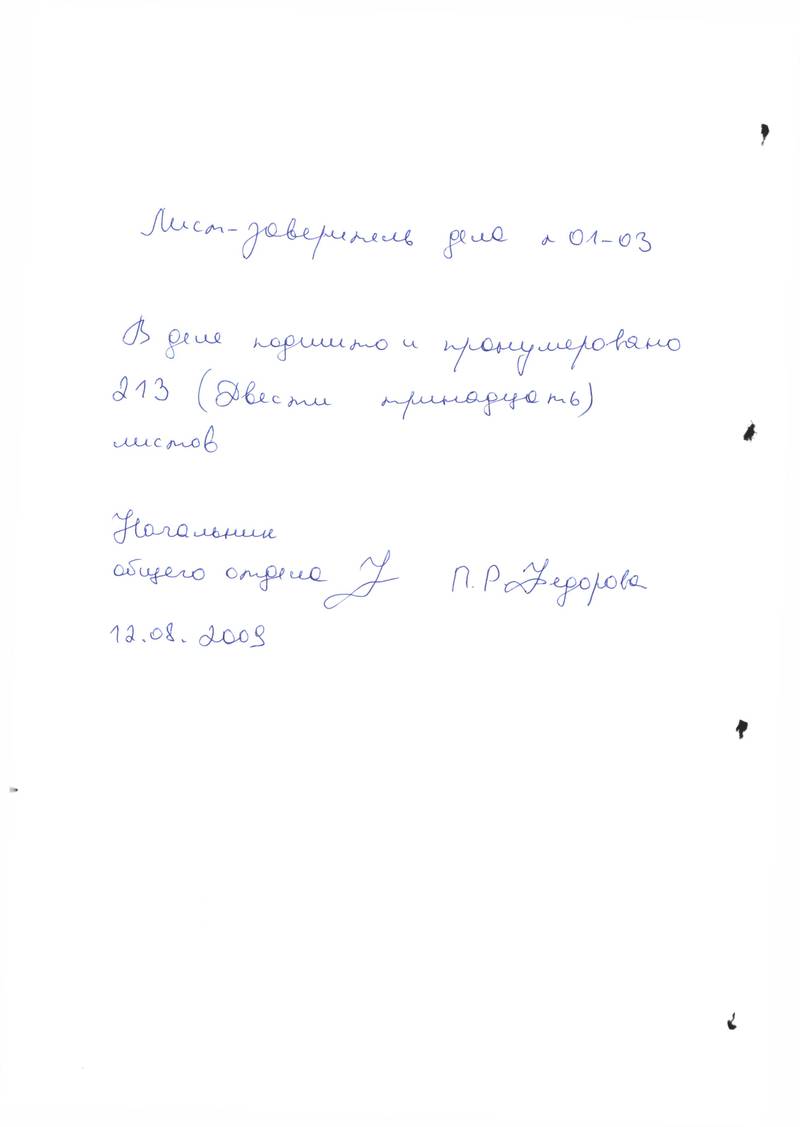 Лист-заверитель дела № 01-03
В деле подшито и пронумеровано
213 (Двести тринадцать)
листов
Начальник
общего отдела П.Р. Федорова
12.08.2009